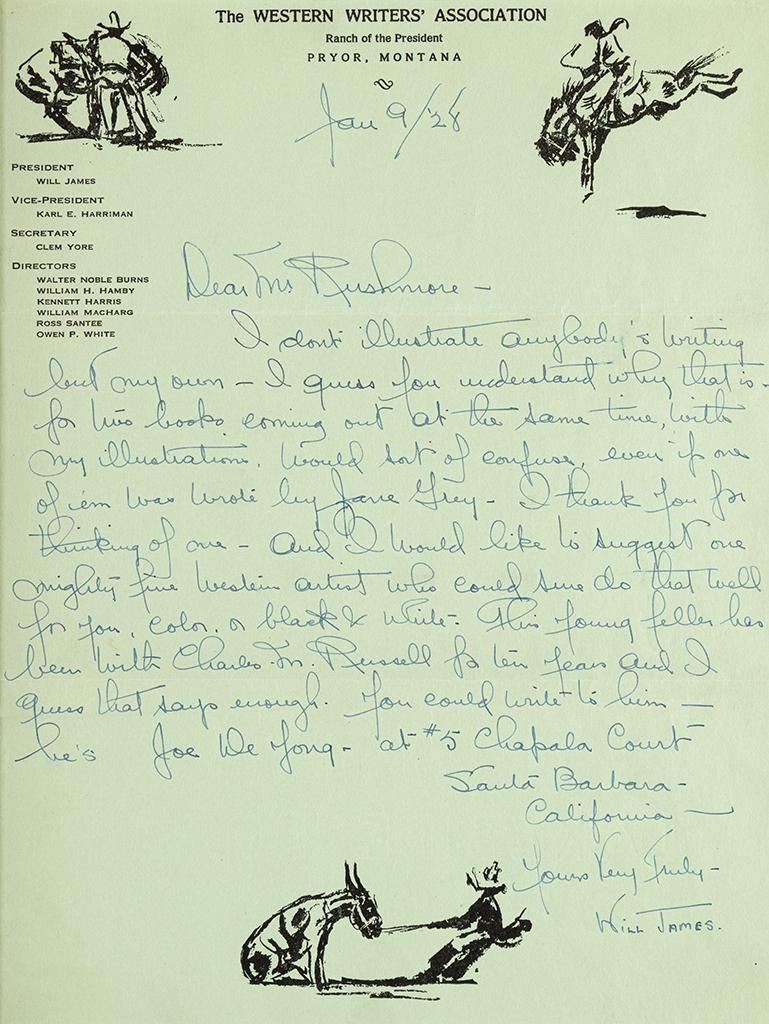 The WESTERN WRITERS' ASSOCIATION
Ranch of the President
PRYOR, MONTANA
Jan 9/'28
PRESIDENT
WILL JAMES
VICE-PRESIDENT
KARL E. HARRIMAN
SECRETARY
CLEM YORE
DIRECTORS
WALTER NOBLE BURNS
WILLIAM H. HAMBY
KENNETT HARRIS
WILLIAM MACHARG
ROSS SANTEE
OWEN P. WHITE
Dear Mr. Rushmore –
I dont illustrate anybody's writing
but my own – I guess you understand why that is –
for two books coming out at the same time, with
my illustrations, would sort of confuse, even if one
of 'em was wrote by Zane Grey – I thank you for
thinking of me – and I would like to suggest one
mighty fine western artist who could sure do that well
for you, color, or black & white. This young feller has
been with Charles M. Russell for ten years and I
guess that says enough. You could write to him –
he's Joe De Yong – at #5 Chapala Court
Santa Barbara –
California –
Yours Very Truly –
WILL JAMES.